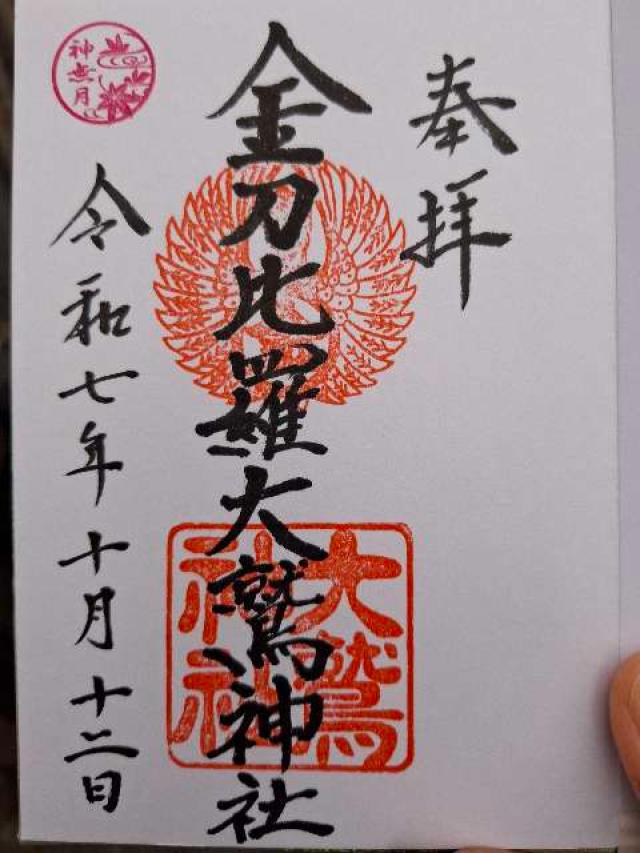 奉拝
金刀比羅大鷲神社
大鷲
神社
神無月
令和七年十月十二日